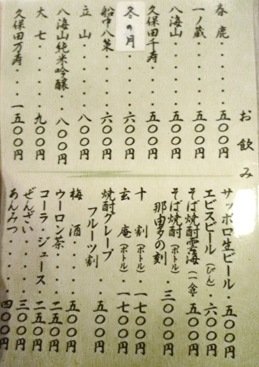 お飲み
春鹿・・・・五〇〇円
一ノ蔵・・・五〇〇円
八海山・・・五〇〇円
久保田千寿・・五〇〇円
冬の月・・・六〇〇円
船中八策・・六〇〇円
立山・・・・八〇〇円
八海山純米吟醸・八〇〇円
大七・・・・九〇〇円
久保田万寿・・一五〇〇円
サッポロ生ビール・五〇〇円
エビスビール(びん)・六〇〇円
そば焼酎雲海(一合)五〇〇円
そば焼酎
那由多の刻(ボトル)・三〇〇〇円
十割(ボトル)一七〇〇円
玄庵(ボトル)一七〇〇円
焼酎グレープ
フルーツ割・・五〇〇円
梅酒・・・・五〇〇円
ウーロン茶・・二五〇円
コーラ・ジュース・二五〇円
ぜんざい・・・三〇〇円
あんみつ・・・四〇〇円